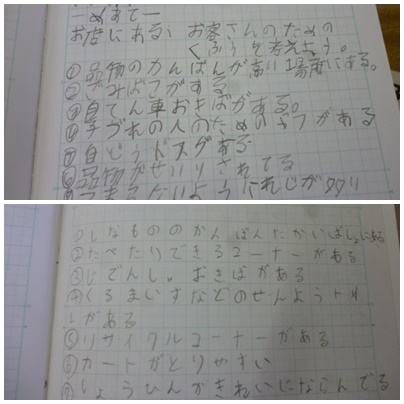 ―めあて―
お店にある、お客さんのための
くふうを考えよう。
①品物のかんばんが高い場所にある。
②ごみばこがある
③自てん車おきばがある。
④子づれの人のための
がある
⑤自どうドアがある
⑥品物がせいりされてる
①しなもののかんばんたかいばしょにある
②たべたりできるコーナーがある
③じでんし。おきばがある
④くるまいすなどのせんようトイ
レがある
⑤リサイクルコーナーがある
⑥カートがとりやすい
⑦しょうひんがきれいにならんでる